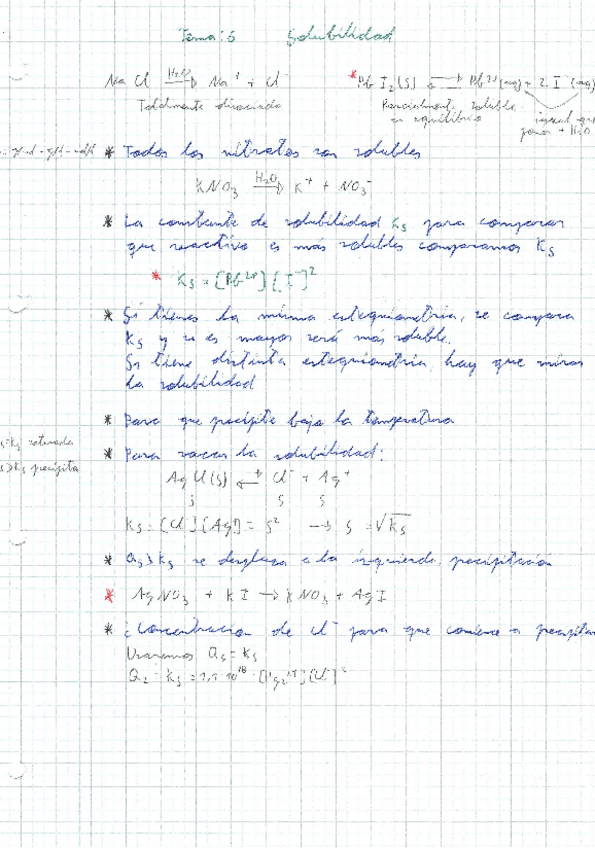 Tema: 5 Solubilidad
Na Cl H2O→ Na+ + Cl-
* Pb I2 (s) ⇌ Pb2+ (aq) + 2 I- (aq)
Totalmente disociado
Parcialment. soluble
en equilibrio
igual que
poner + H2O
* Todos los nitratos son solubles
KNO3 H2O→ K+ + NO3-
* La constante de solubilidad Ks para comparar
que reactivo es más solubles comparamos Ks
* Ks = [Pb2+] [I-]2
* Si tienes la misma estequiometría, se compara
Ks y si es mayor será más soluble.
Si tiene distinta estequiometría, hay que mirar
la solubilidad
* Para que precipite baja la temperatura
s=Ks saturada
* Para sacar la solubilidad:
s>Ks precipita
Ag Cl (s) ⇌ Cl- + Ag+
s s s
Ks = [Cl-] [Ag+] = s2 → s = √Ks
* Qs>Ks se desplaza a la izquierda, precipitación
* AgNO3 + KI → KNO3 + AgI
* ¿Concentracion de Cl- para que comience a precipitar
Usaremos Qs = Ks